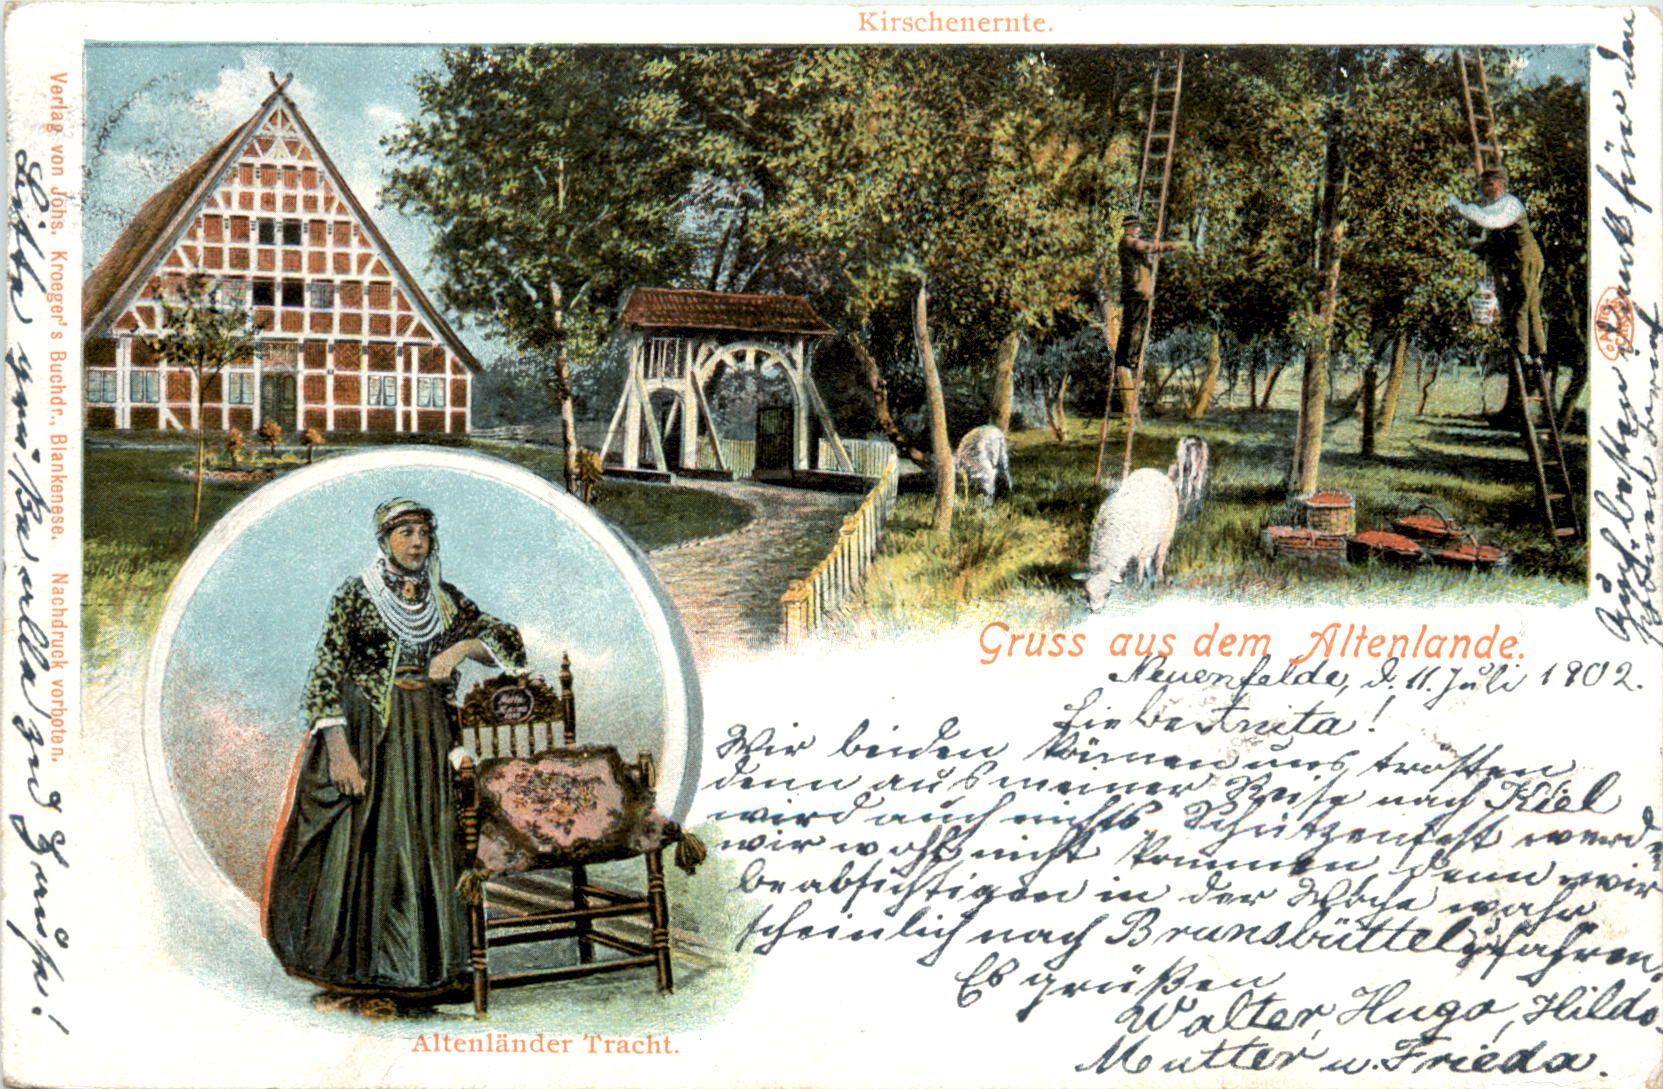 Kirschenernte.
Verlag von Johs. Kroeger's Buchdr., Blankenese. Nachdruck vorboten.
Gruss aus dem Altenlande.
Neuenfelde, d. 11. Juli 1902.
Liebe Anita!
Wir beiden können uns trösten
denn aus meiner Reise nach Kiel
wird auch nichts Schützenfest werde
wir wohl nicht kommen denn wir
beabsichtigen in der Woche wahr
scheinlich nach Brunsbüttel z. fahren.
Es grüßen
Walter, Hugo, Hilda,
Mutter u. Frieda.
Altenländer Tracht.
Bitte grüße alle
Dank für den